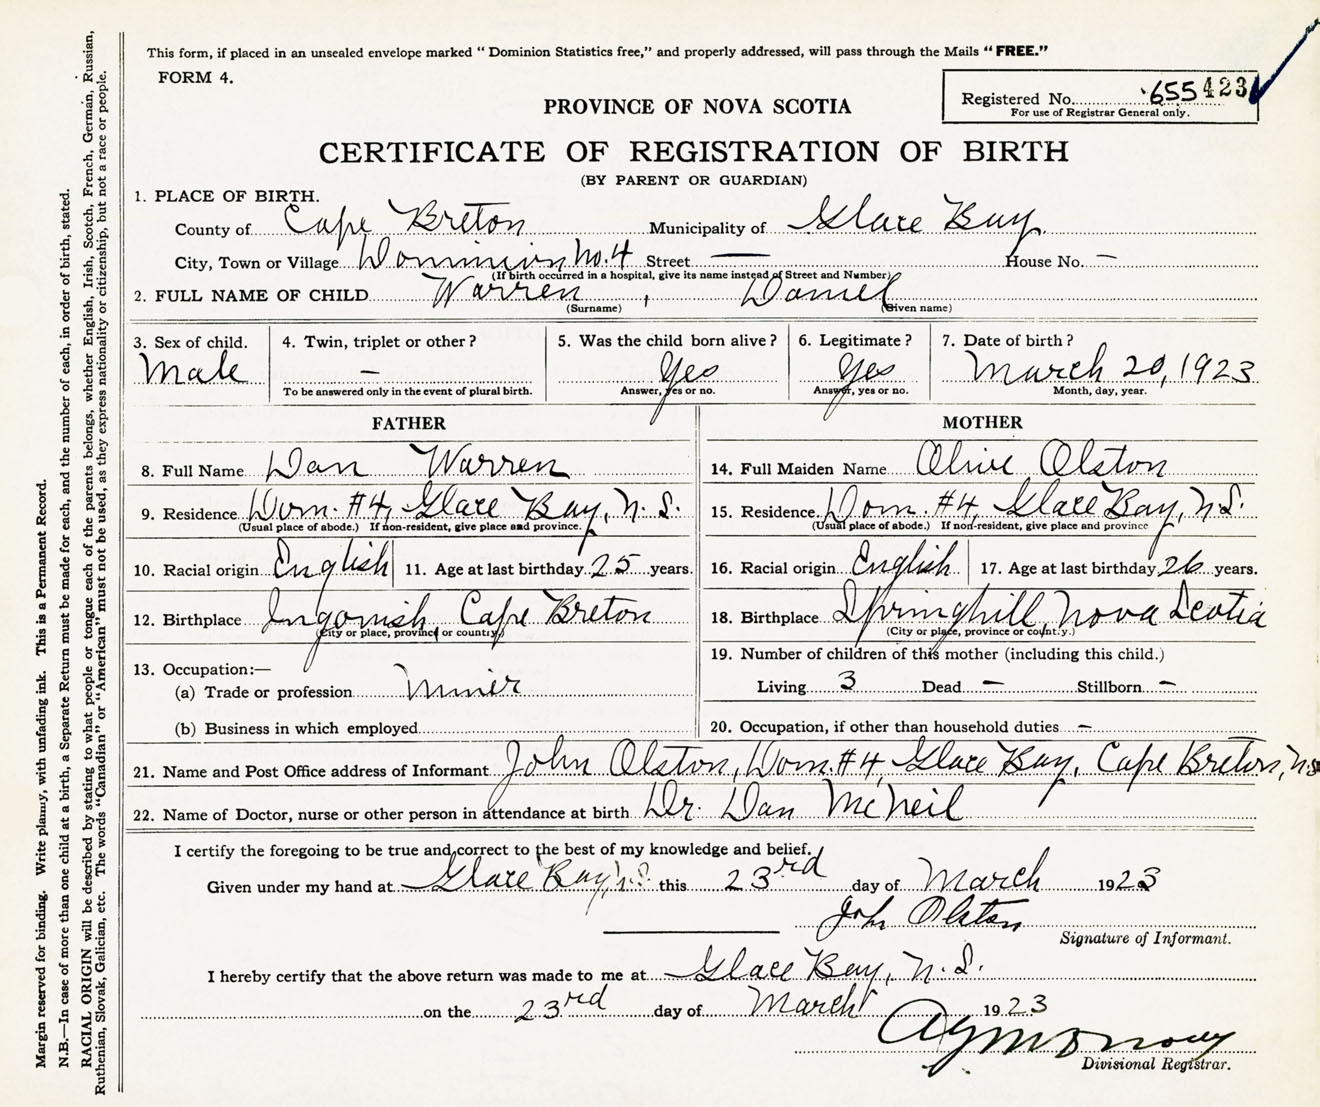 This form, if placed in an unsealed envelope marked “ Dominion Statistics free,” and properly addressed, will pass through the Mails “ FREE.”
FORM 4.
Registered No. 655423
For use of Registrar General only.
PROVINCE OF NOVA SCOTIA
CERTIFICATE OF REGISTRATION OF BIRTH
(BY PARENT OR GUARDIAN)
1. PLACE OF BIRTH.
County of Cape Breton Municipality of Glace Bay.
City, Town or Village Dominion No. 4 Street — House No. —
(If birth occurred in a hospital, give its name instead of Street and Number)
2. FULL NAME OF CHILD Warren , Daniel
(Surname) (Given name)
3. Sex of child. 4. Twin, triplet or other ? 5. Was the child born alive ? 6. Legitimate ? 7. Date of birth ?
Male — Yes Yes March 20, 1923
To be answered only in the event of plural birth. Answer, yes or no. Answer, yes or no. Month, day, year.
FATHER MOTHER
8. Full Name Dan Warren 14. Full Maiden Name Olive Olston
9. Residence Dom. #4, Glace Bay, N. S. 15. Residence. Dom. #4, Glace Bay, N.S.
(Usual place of abode.) If non-resident, give place and province. (Usual place of abode.) If non-resident, give place and province
10. Racial origin English 11. Age at last birthday 25 years. 16. Racial origin English 17. Age at last birthday 26 years.
12. Birthplace Ingonish, Cape Breton 18. Birthplace Springhill, Nova Scotia
(City or place, province or county.) (City or place, province or county.)
19. Number of children of this mother (including this child.)
13. Occupation:—
(a) Trade or profession Miner Living 3 Dead — Stillborn —
(b) Business in which employed 20. Occupation, if other than household duties —
21. Name and Post Office address of Informant John Olston, Dom. #4, Glace Bay, Cape Breton, N.S
22. Name of Doctor, nurse or other person in attendance at birth Dr. Dan McNeil
I certify the foregoing to be true and correct to the best of my knowledge and belief.
Given under my hand at Glace Bay, N.S. this 23rd day of March 1923
John Olston
Signature of Informant.
I hereby certify that the above return was made to me at Glace Bay, N. S.
on the 23rd day of March 1923
Divisional Registrar.
Margin reserved for binding. Write plainly, with unfading ink. This is a Permanent Record.
N.B.—In case of more than one child at a birth, a Separate Return must be made for each, and the number of each, in order of birth, stated.
RACIAL ORIGIN will be described by stating to what people or tongue each of the parents belongs, whether English, Irish, Scotch, French, German, Russian,
Ruthenian, Slovak, Galician, etc. The words “Canadian” or “American” must not be used, as they express nationality or citizenship, but not a race or people.